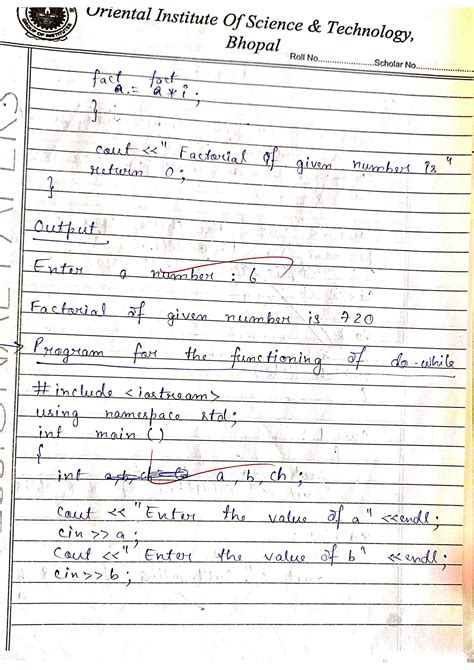 Oriental Institute Of Science & Technology,
Bhopal
Roll No.................Scholar No.................
fact fact
a = a * i ;
}
cout <<" Factorial of given number is "
return 0;
}
Output
Enter a number : 6
Factorial of given number is 720
Program for the functioning of do-while
# include <iostream>
using namespace std;
int main ()
{
int a, b, ch ;
cout << "Enter the value of a" <<endl;
cin >> a ;
Cout <<" Enter the value of b" <<endl;
cin >> b ;